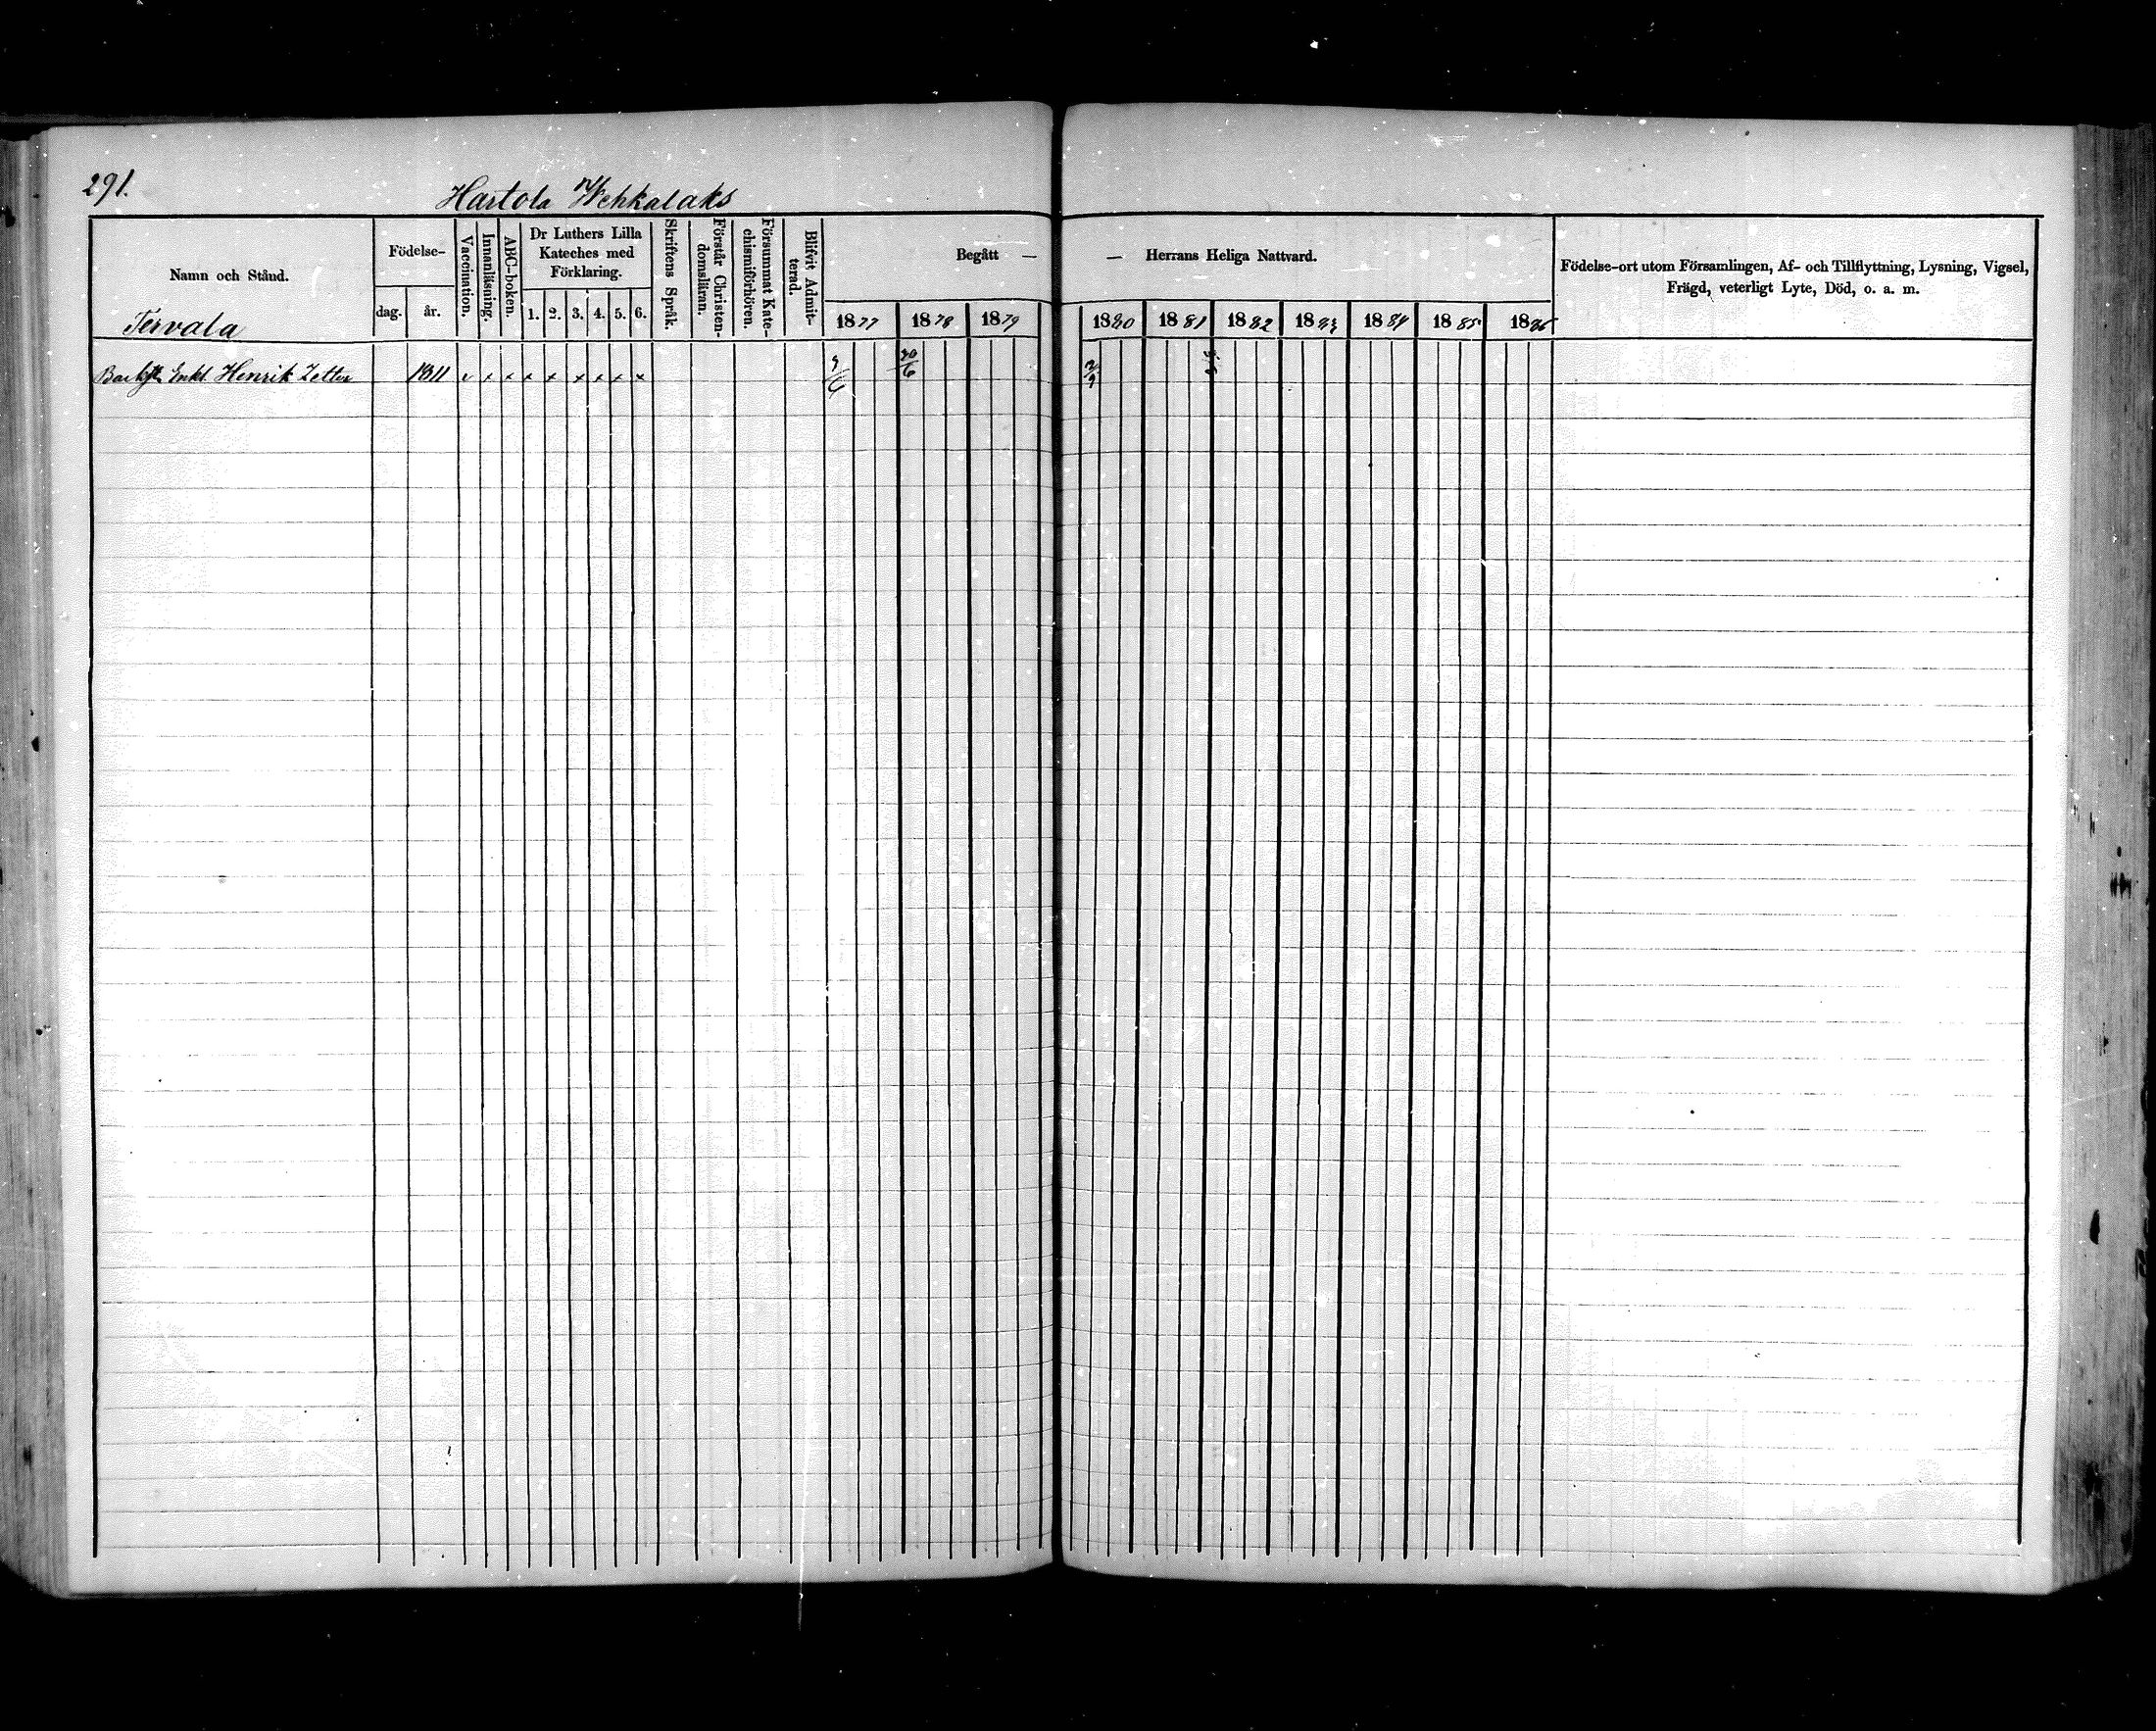 291.
Hartola Wehkalaks
Namn och Stånd.
Födelse-
dag.
år.
Vaccination.
Innanläsning.
ABC-boken.
Dr Luthers Lilla
Kateches med
Förklaring.
1. 2. 3. 4. 5. 6.
Skriftens Språk.
Förstår Christen-
domsläran.
Försummat Kate-
chismiförhören.
Blifvit Admit-
terad.
Begått —
— Herrans Heliga Nattvard.
1877 1878 1879 1880 1881 1882 1883 1884 1885 1886
Födelse-ort utom Församlingen, Af- och Tillflyttning, Lysning, Vigsel,
Frägd, veterligt Lyte, Död, o. a. m.
Tervala
Enkl. Henrik Zetter 1811 v x x x x x x x x 3/6 30/6